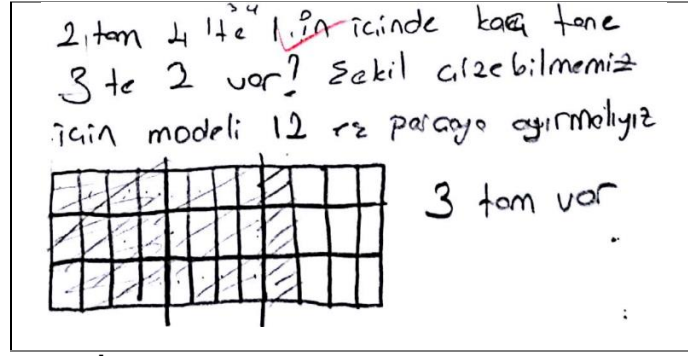 2 tam 4'te 1'in içinde kaç tane
3 te 2 var? Şekil çizebilmemiz
için modeli 12 ye parçaya ayırmalıyız
3 tam var